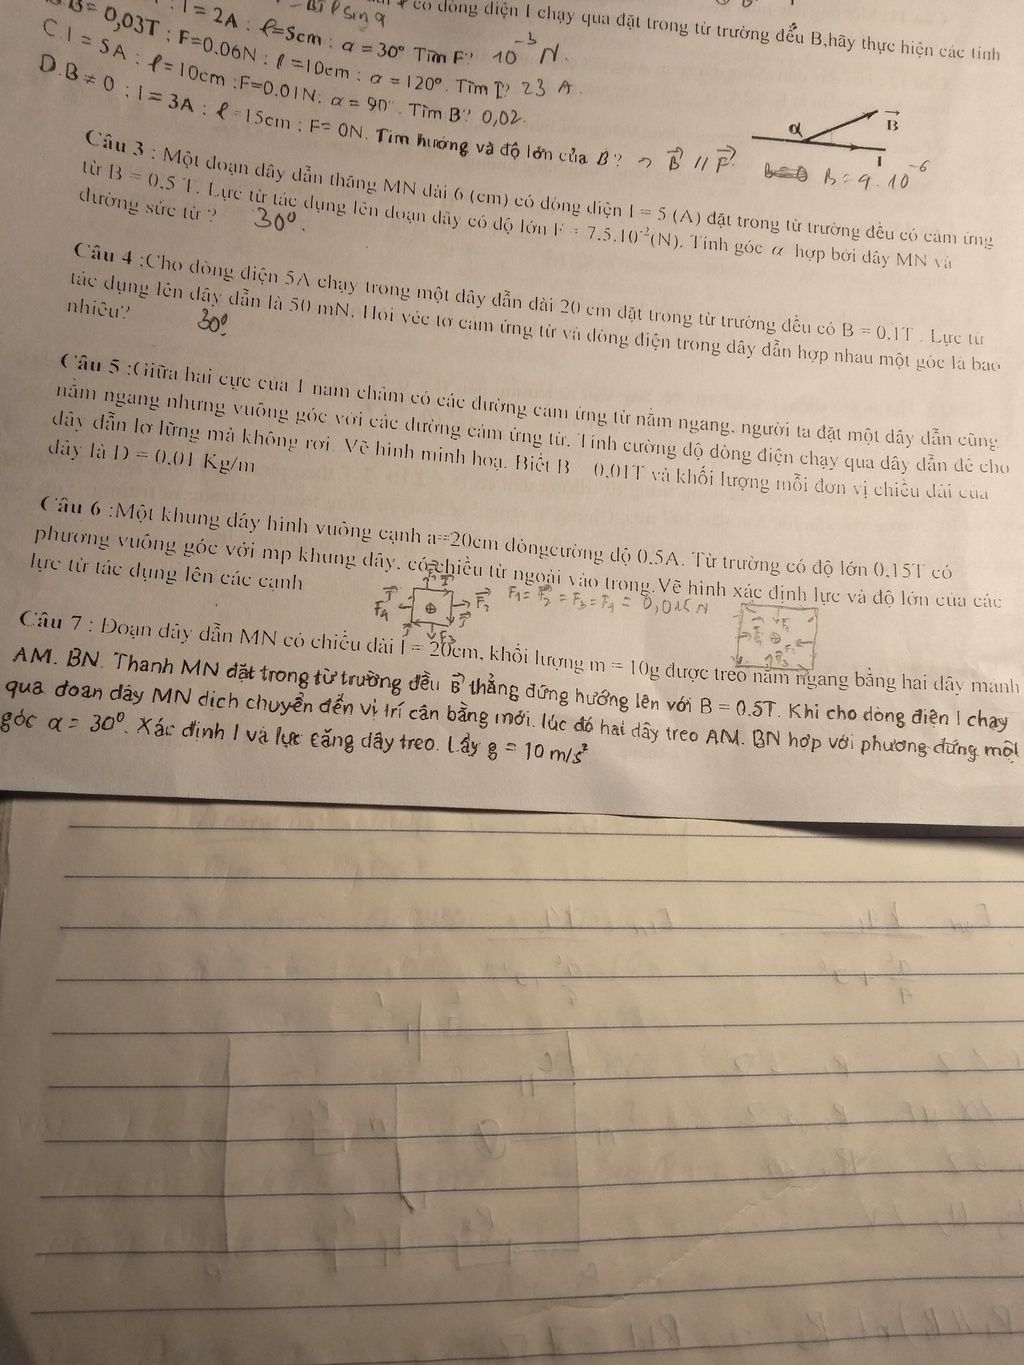 có dòng điện I chạy qua đặt trong từ trường đều B,hãy thực hiện các tính
I = 2A ; ℓ=5cm ; α = 30° Tìm F? 10⁻³ N.
B.B= 0,03T ; F=0.06N ; ℓ =10cm ; α = 120°. Tìm I? 23 A.
C.I = 5A ; ℓ = 10cm ;F=0.01N; α = 90°. Tìm B? 0,02.
D.B ≠ 0 ; I = 3A ; ℓ =15cm ; F= 0N. Tìm hướng và độ lớn của B?
B // F.
α
B
I
B = 9.10⁻⁶
Câu 3 : Một đoạn dây dẫn thẳng MN dài 6 (cm) có dòng điện I = 5 (A) đặt trong từ trường đều có cảm ứng
từ B = 0.5 T. Lực từ tác dụng lên đoạn dây có độ lớn F = 7.5.10⁻²(N). Tính góc α hợp bởi dây MN và
đường sức từ ? 30⁰.
Câu 4 :Cho dòng điện 5A chạy trong một dây dẫn dài 20 cm đặt trong từ trường đều có B = 0,1T . Lực từ
tác dụng lên dây dẫn là 50 mN. Hỏi véc tơ cảm ứng từ và dòng điện trong dây dẫn hợp nhau một góc là bao
nhiêu? 30⁰.
Câu 5 :Giữa hai cực của 1 nam châm có các đường cảm ứng từ nằm ngang, người ta đặt một dây dẫn cũng
nằm ngang nhưng vuông góc với các đường cảm ứng từ. Tính cường độ dòng điện chạy qua dây dẫn để cho
dây dẫn lơ lửng mà không rơi. Vẽ hình minh hoạ. Biết B 0,01T và khối lượng mỗi đơn vị chiều dài của
dây là D = 0,01 Kg/m
Câu 6 :Một khung dây hình vuông cạnh a=20cm dòngcường độ 0.5A. Từ trường có độ lớn 0,15T có
phương vuông góc với mp khung dây, có chiều từ ngoài vào trong.Vẽ hình xác định lực và độ lớn của các
lực từ tác dụng lên các cạnh
F₄
F₂
F₃
F₁ = F₂ = F₃ = F₄ = 0,015 N
Câu 7 : Đoạn dây dẫn MN có chiều dài l = 20cm, khối lượng m = 10g được treo nằm ngang bằng hai dây mảnh
AM. BN. Thanh MN đặt trong từ trường đều B thẳng đứng hướng lên với B = 0.5T. Khi cho dòng điện I chạy
qua đoạn dây MN dịch chuyển đến vị trí cân bằng mới. lúc đó hai dây treo AM. BN hợp với phương đứng một
góc α = 30⁰. Xác định I và lực căng dây treo. Lấy g = 10 m/s²